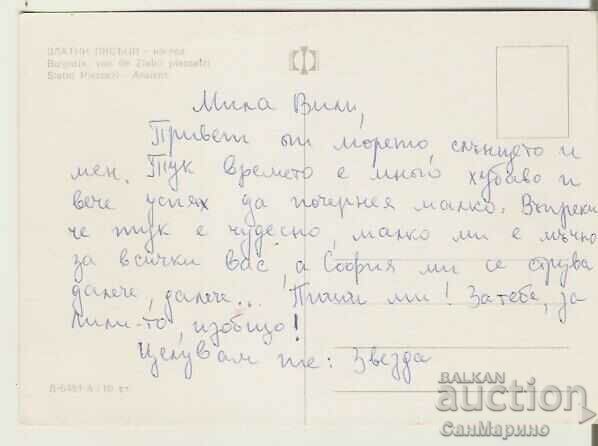 ЗЛАТНИ ПЯСЪЦИ – изглед
Bulgarie, vue de Zlatni piassatzi
Slatni Piassazi – Ansicht
Мила Вили,
Привет от морето, слънцето и
мен. Тук времето е много хубаво и
вече успях да почернея малко. Въпреки
че тук е чудесно, малко ми е мъчно
за всички вас, а София ми се струва
далече, далече... Пиши ми! За тебе, за
Лили-то, изобщо!
Целувам те: Звезда
Д-6491-А / 10 ст.
BALKAN
auction
СанМарино